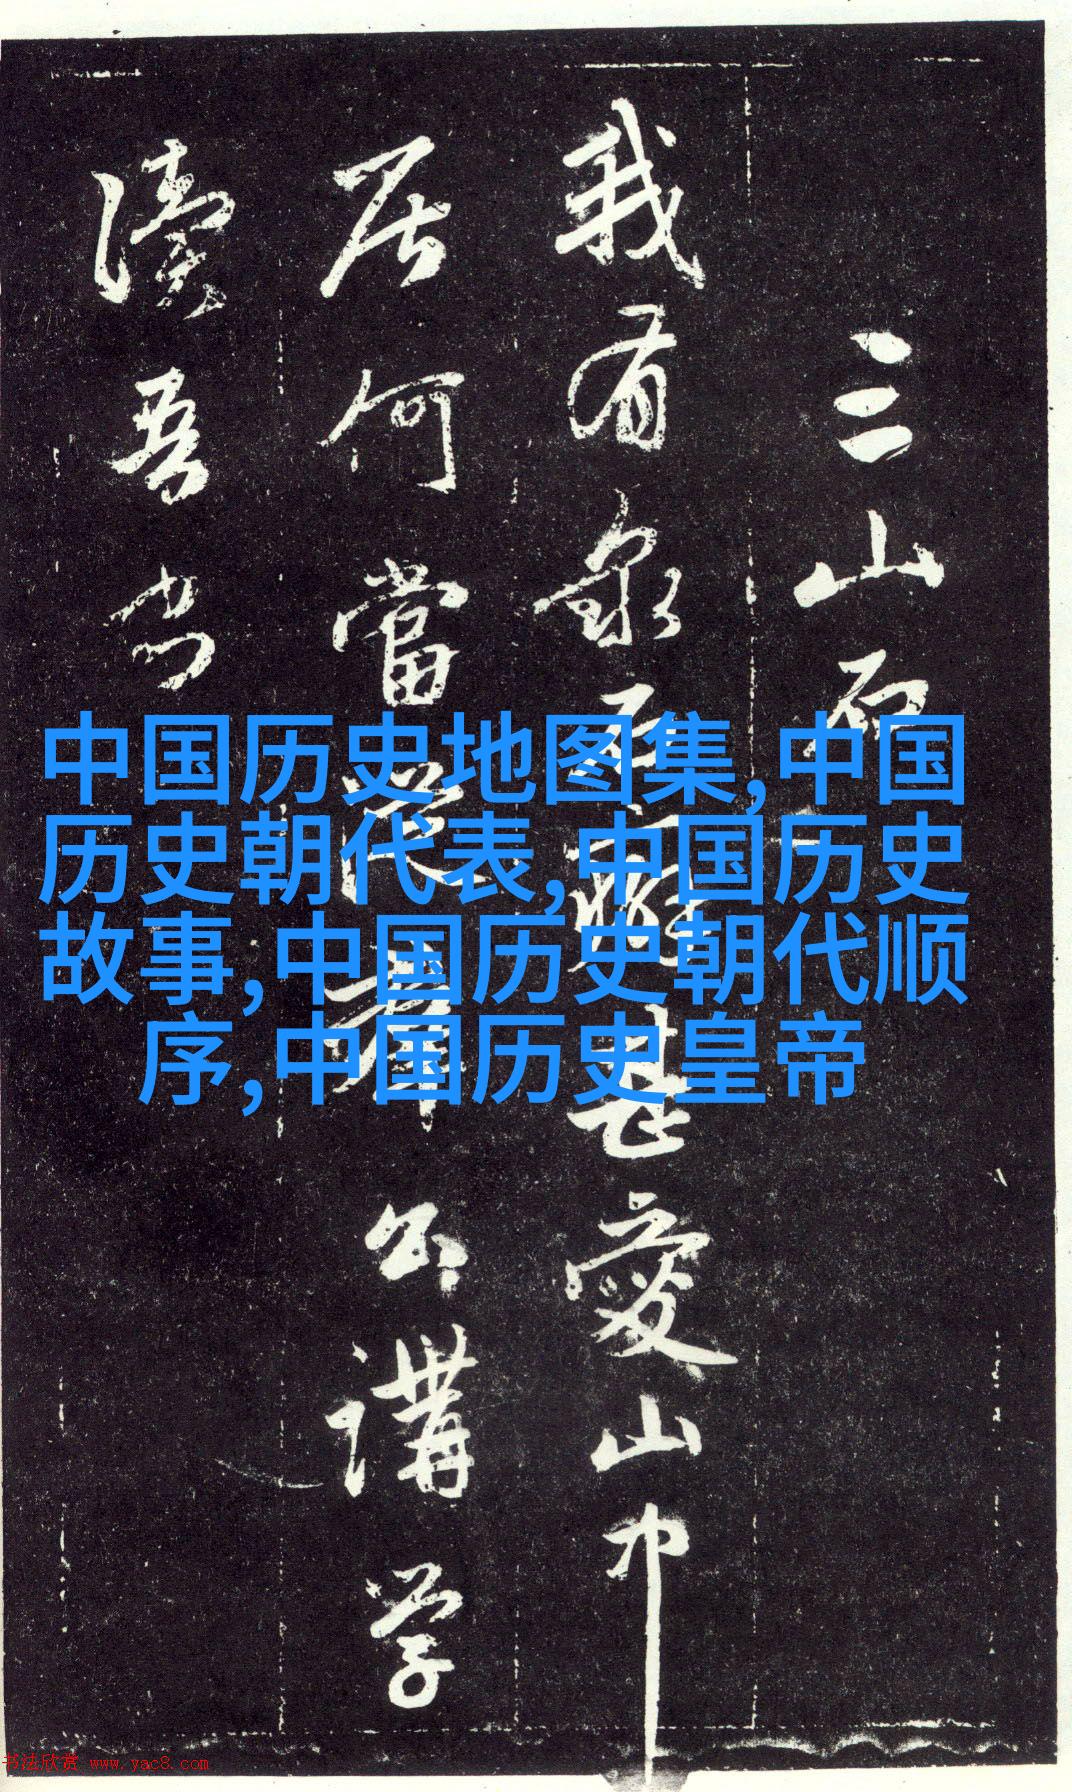 三山
我有泉石癖甚愛山中
居何當從羣公講学
讀吾書
中国历史地图集,中国
历史朝代表,中国历史
故事,中国历史朝代顺
序,中国历史皇帝
书法欣赏 www.yac8.com